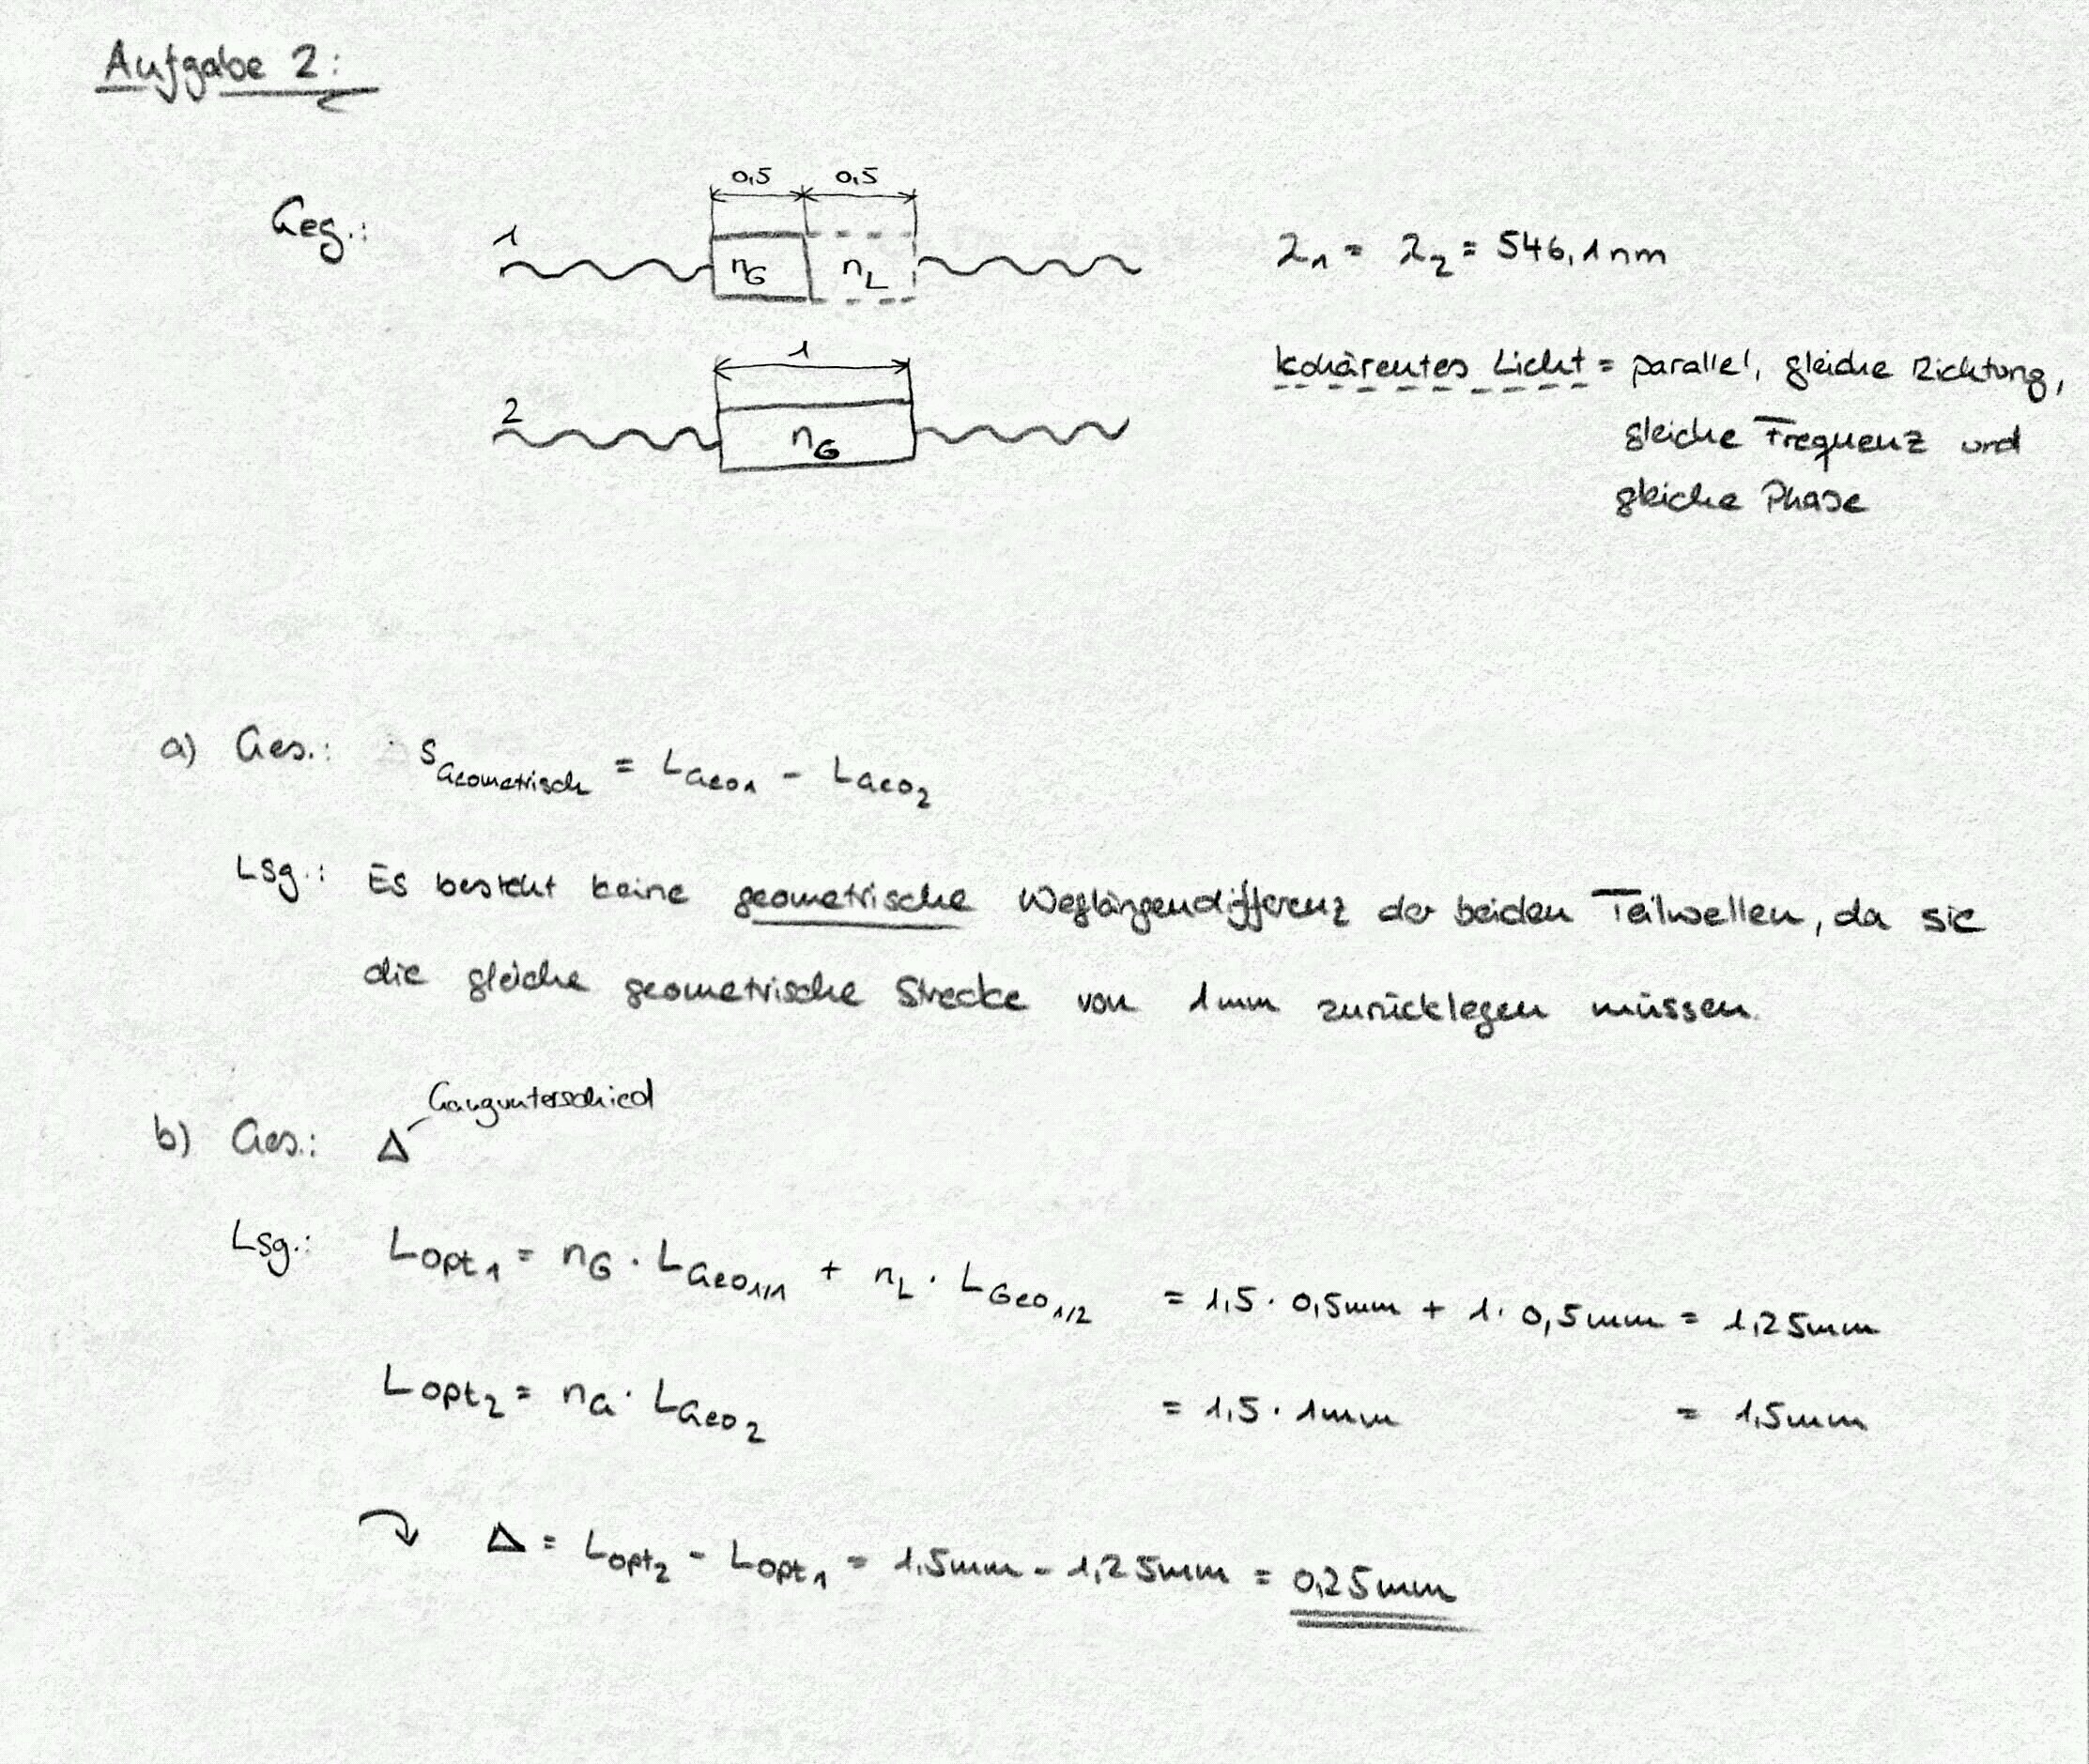 Aufgabe 2:
Geg.:
1
0,5 0,5
n_G n_L
λ₁ = λ₂ = 546,1 nm
2
1
n_G
kohärentes Licht = parallel, gleiche Richtung,
gleiche Frequenz und
gleiche Phase
a) Ges.: s_Geometrisch = L_Geo1 - L_Geo2
Lsg.: Es besteht keine geometrische Weglängendifferenz der beiden Teilwellen, da sie
die gleiche geometrische Strecke von 1mm zurücklegen müssen.
b) Ges.: Δ Gangunterschied
Lsg.: L_opt1 = n_G · L_Geo1/1 + n_L · L_Geo1/2 = 1,5 · 0,5mm + 1 · 0,5mm = 1,25mm
L_opt2 = n_G · L_Geo2 = 1,5 · 1mm = 1,5mm
↷ Δ = L_opt2 - L_opt1 = 1,5mm - 1,25mm = 0,25mm